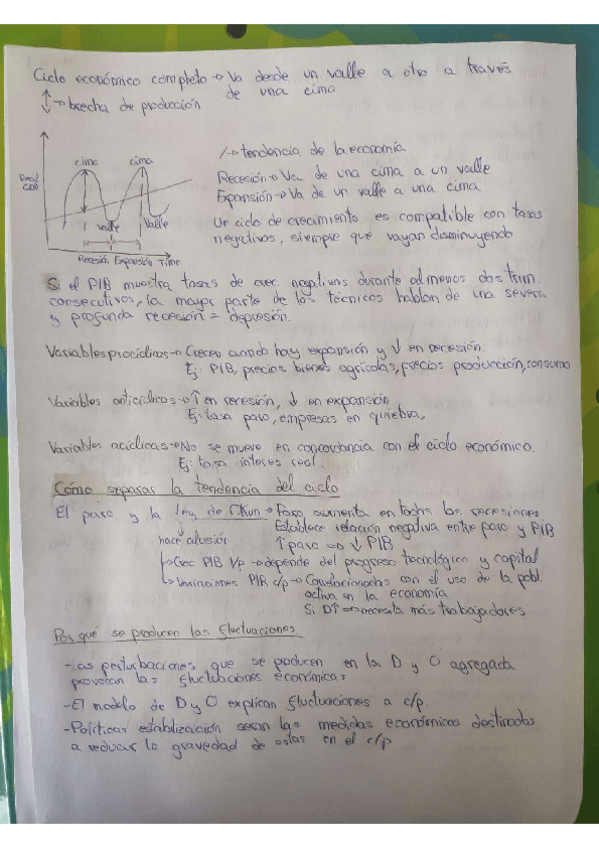 Ciclo económico completo → Va desde un valle a otro a través
de una cima
↕ → brecha de producción
/→ tendencia de la economía
cima cima
Recesión → Va de una cima a un valle
Real GDP
Expansión → Va de un valle a una cima
Valle Valle
Un ciclo de crecimiento es compatible con tasas
negativas, siempre que vayan disminuyendo
Recesión Expansión Time
Si el PIB muestra tasas de crec. negativas durante al menos dos trim.
consecutivos, la mayor parte de los técnicos hablan de una severa
y profunda recesión = depresión.
Variables procíclicas → Crecen cuando hay expansión y ↓ en recesión.
Ej: PIB, precios bienes agrícolas, precios producción, consumo
Variables anticíclicas → ↑ en recesión, ↓ en expansión
Ej: tasa paro, empresas en quiebra,
Variables acíclicas → No se mueve en concordancia con el ciclo económico.
Ej: tasa interes real.
Cómo separar la tendencia del ciclo
El paro y la ley de Okun → Paro aumenta en todas las recesiones
Establece relación negativa entre paro y PIB
hace alusión ↑ paro => ↓ PIB
↳ Crec PIB l/p → depende del progreso tecnológico y capital
↳ Variaciones PIB c/p → Correlacionadas con el uso de la pobl.
activa en la economía
Si D↑ => necesita más trabajadores
Por qué se producen las fluctuaciones
-Las perturbaciones que se producen en la D y O agregada
provocan las fluctuaciones económicas
-El modelo de D y O explican fluctuaciones a c/p.
-Políticas estabilización seran las medidas económicas destinadas
a reducir la gravedad de estas en el c/p